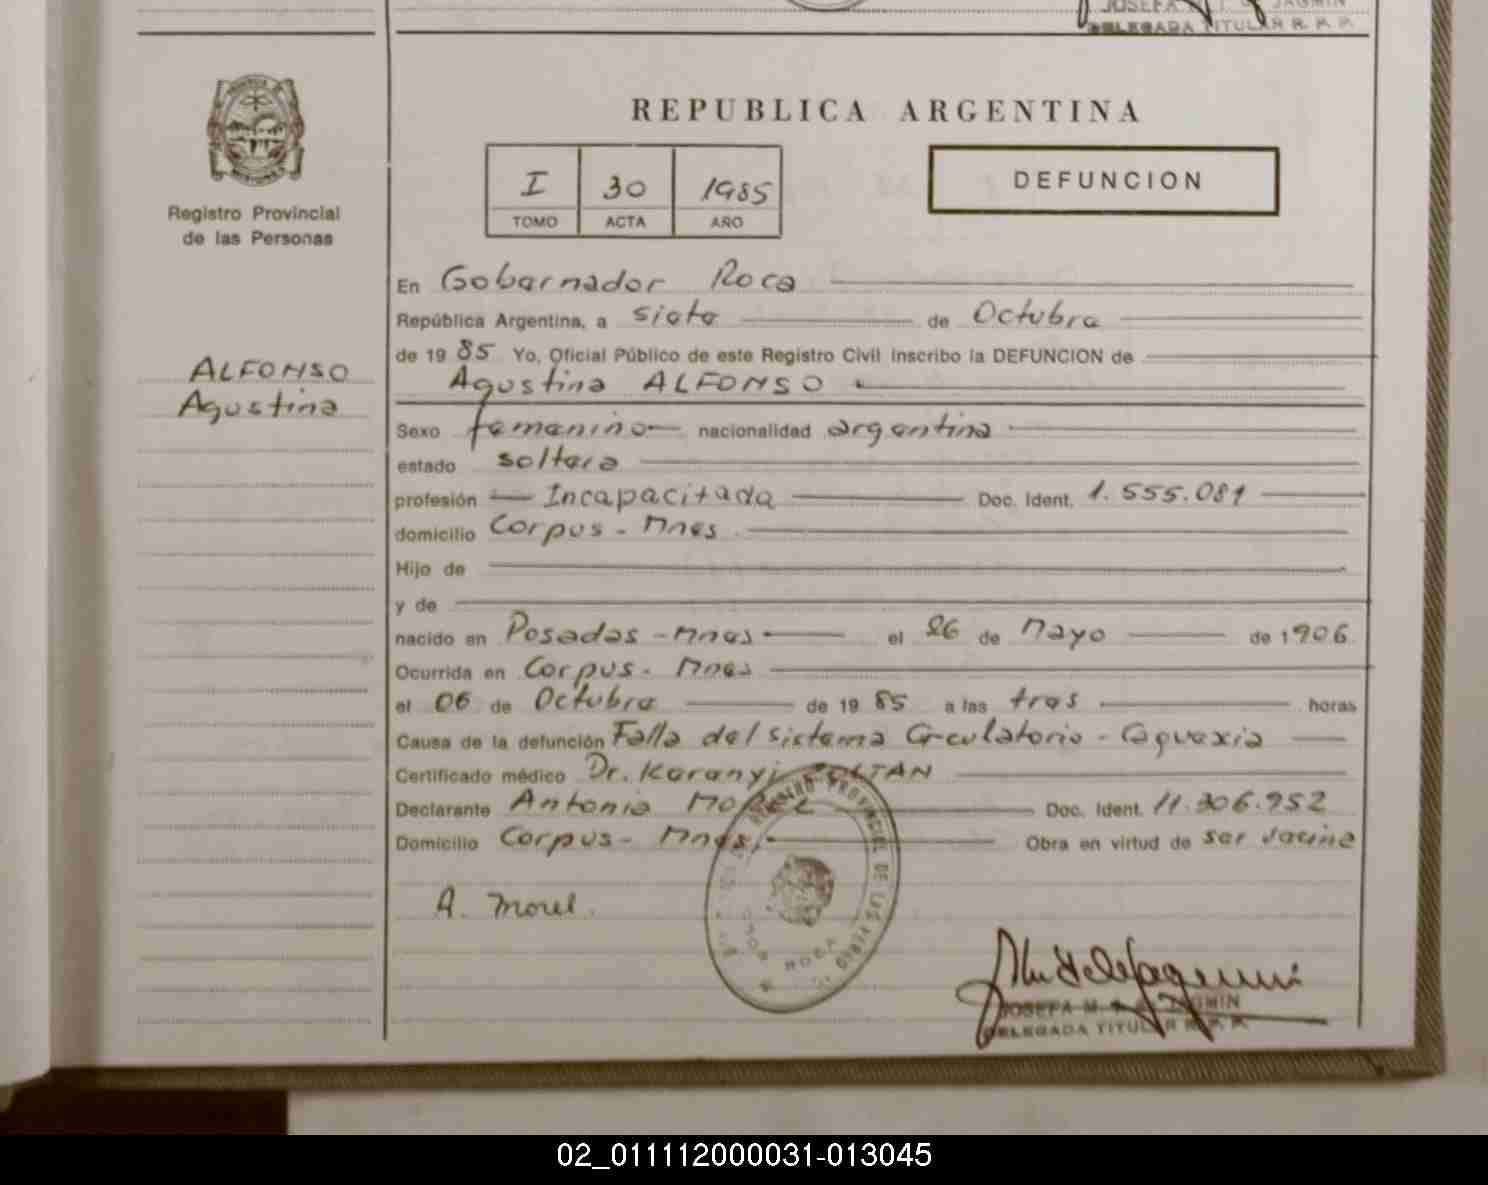 JOSEFA JAGMIN
DELEGADA TITULAR R. P. P.
Registro Provincial
de las Personas
ALFONSO
Agustina
REPUBLICA ARGENTINA
I 30 1985
TOMO ACTA AÑO
DEFUNCION
En Gobernador Roca
República Argentina, a siete de Octubre
de 1985 Yo, Oficial Público de este Registro Civil inscribo la DEFUNCION de
Agustina ALFONSO
Sexo femenino nacionalidad argentina
estado soltera
profesión Incapacitada Doc. Ident. 1.555.081
domicilio Corpus - Mnes
Hijo de
y de
nacido en Posadas - Mnes el 26 de Mayo de 1906
Ocurrida en Corpus - Mnes
el 06 de Octubre de 1985 a las tres horas
Causa de la defunción Falla del sistema Circulatorio - Caquexia
Certificado médico Dr. Karanyi ZOLTAN
Declarante Antonia MOREL Doc. Ident. 11.306.952
Domicilio Corpus - Mnes. Obra en virtud de ser vecina
A. Morel.
REGISTRO PROVINCIAL DE LAS PERSO
ROCA
JOSEFA M. JAGMIN
DELEGADA TITULAR R. P. P.
02_011112000031-013045